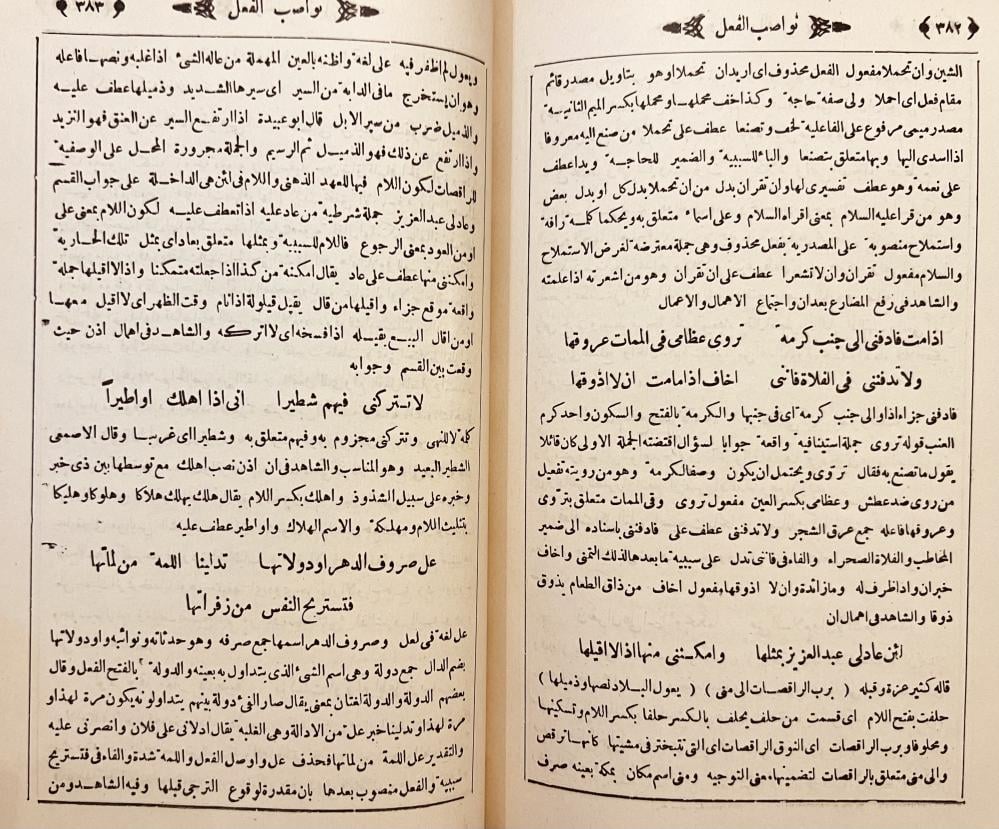 ﴿ ٣٨٢ ﴾ نواصب الفعل
الشين وان تحملا مفعول الفعل محذوف اى اريدان تحملا اوهو بتاويل مصدر قائم
مقام فعل اى احملا ولى صفة حاجة وكذا خف محملها وحملها بكسر الميم الثانية
مصدر ميمى مرفوع على الفاعلية لخف وتصنعا عطف على تحملا من صنع اليه معروفا
اذا اسدى اليها وبها متعلق بتصنعا والباء للسببية والضمير للحاجة ويدا عطف
على نعمة وهو عطف تفسيرى لها وان تقران بدل من ان تحملا بدل كل او بدل بعض
وهو من قرا عليه السلام بمعنى اقراه السلام وعلى اسماء متعلق به ويحكما كلمة رافة
واستملاح منصوبة على المصدرية بفعل محذوف وهى جملة معترضة لغرض الاستملاح
والسلام مفعول تقران وان لا تشعرا عطف على ان تقران وهو من اشعرته اذا علمته
والشاهد فى رفع المضارع بعد ان واجتماع الاهمال والاعمال
اذا مت فادفنى الى جنب كرمة تروى عظامى فى الممات عروقها
ولا تدفنى فى الفلاة فاننى اخاف اذا ما مت ان لا اذوقها
فادفنى جزاء اذا والى جنب كرمة اى فى جنبها والكرمة بالفتح والسكون واحد كرم
العنب قوله تروى جملة استينافية واقعة جوابا لسؤال اقتضته الجملة الاولى كان قائلا
يقول ما تصنع به فقال تروى ويحتمل ان يكون وصفا لكرمة وهو من رويته تفعيل
من روى ضد عطش وعظامى بكسر العين مفعول تروى وفى الممات متعلق بتروى
وعروقها فاعله جمع عرق الشجر ولا تدفنى عطف على فادفنى باسناده الى ضمير
المخاطب والفلاة الصحراء والفاء فى فاننى تدل على سببية ما بعدها لذلك التمنى واخاف
خبران واذا ظرف له وما زائدة وان لا اذوقها مفعول اخاف من ذاق الطعام يذوق
ذوقا والشاهد فى اهمال ان
لئن عاد لى عبد العزيز بمثلها وامكننى منها اذا لا اقيلها
قاله كثير عزة وقبله ( برب الراقصات الى منى ) ( يعول البلاد نصها وذميلها )
حلفت بفتح اللام اى قسمت من حلف يحلف بالكسر حلفا بكسر اللام وتسكينها
ومحلوفا وبرب الراقصات اى النوق الراقصات اى التى تتبختر فى مشيتها كانها ترقص
والى منى متعلق بالراقصات لتضمينها معنى التوجيه ومنى اسم مكان بمكة بعينه صرف
نواصب الفعل ﴿ ٣٨٣ ﴾
ويعول لم اظفر فيه على لغة واظنه بالعين المهملة من عاله الشئ اذا غلبه ونصها فاعله
وهو ان يستخرج ما فى الدابة من السير اى سيرها الشديد وذميلها عطف عليه
والذميل ضرب من سير الابل قال ابو عبيدة اذا ارتفع السير عن العنق فهو التزيد
واذا ارتفع عن ذلك فهو الذميل ثم الرسيم والجملة مجرورة المحل على الوصفية
للراقصات لكون اللام فيها للعهد الذهنى واللام فى لئن هى الداخلة على جواب القسم
وعاد لى عبد العزيز جملة شرطية من عاد عليه اذا تعطف عليه لكون اللام بمعنى على
او من العود بمعنى الرجوع فاللام للسببية وبمثلها متعلق بعاد اى بمثل تلك الحارية
وامكننى منها عطف على عاد يقال امكنه من كذا اذا جعلته متمكنا واذا لا اقيلها جملة
واقعة موقع جزاء واقيلها من قال يقيل قيلولة اذا نام وقت الظهر اى لا اقيل معها
او من اقال البيع يقيله اذا فسخه اى لا اتركه والشاهد فى اهمال اذن حيث
وقعت بين القسم وجوابه
لا تتركنى فيهم شطيرا انى اذا اهلك او اطيرا
كلة لا للنهى وتتركنى مجزوم به وفيهم متعلق به وشطيرا اى غريبا وقال الاصمعى
الشطير البعيد وهو المناسب والشاهد فى ان اذن نصب اهلك مع توسطها بين ذى خبر
وخبره على سبيل الشذوذ واهلك بكسر اللام يقال هلك يهلك هلاكا وهلوكا وهليكا
بتثليث اللام ومهلكة والاسم الهلاك واو اطير عطف عليه
عل صروف الدهر او دولاتها تدلينا اللمة من لماتها
فتستريح النفس من زفراتها
عل لغة فى لعل وصروف الدهر اسمها جمع صرفه وهو حدثانه ونوائبه واو دولاتها
بضم الدال جمع دولة وهى اسم الشئ الذى يتداول به بعينه والدولة بالفتح الفعل وقال
بعضهم الدولة والدولة لغتان بمعنى يقال صار الفئ دولة بينهم يتداولونه يكون مرة لهذا و
مرة لهذا وتدلينا خبر عل من الادالة وهى الغلبة يقال ادلانى على فلان وانصرنى عليه
والتقدير عل اللمة من لماتها فحذف عل واوصل الفعل واللمة شدة والفاء فى فتستريح
سببية والفعل منصوب بعدها بان مقدرة لوقوع الترجى قبلها وفيه الشاهد ومن